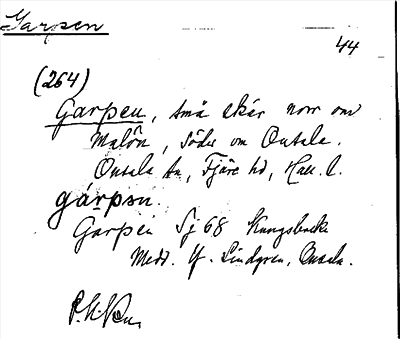 Garpen
44
(264)
Garpen, små skär norr om
Malön, Söder om Onsala.
Onsala sn, Fjäre hd, Hall. l.
gárpən.
Garpen Sj 68 Kungsbacka
Medd. Lindgren, Onsala.